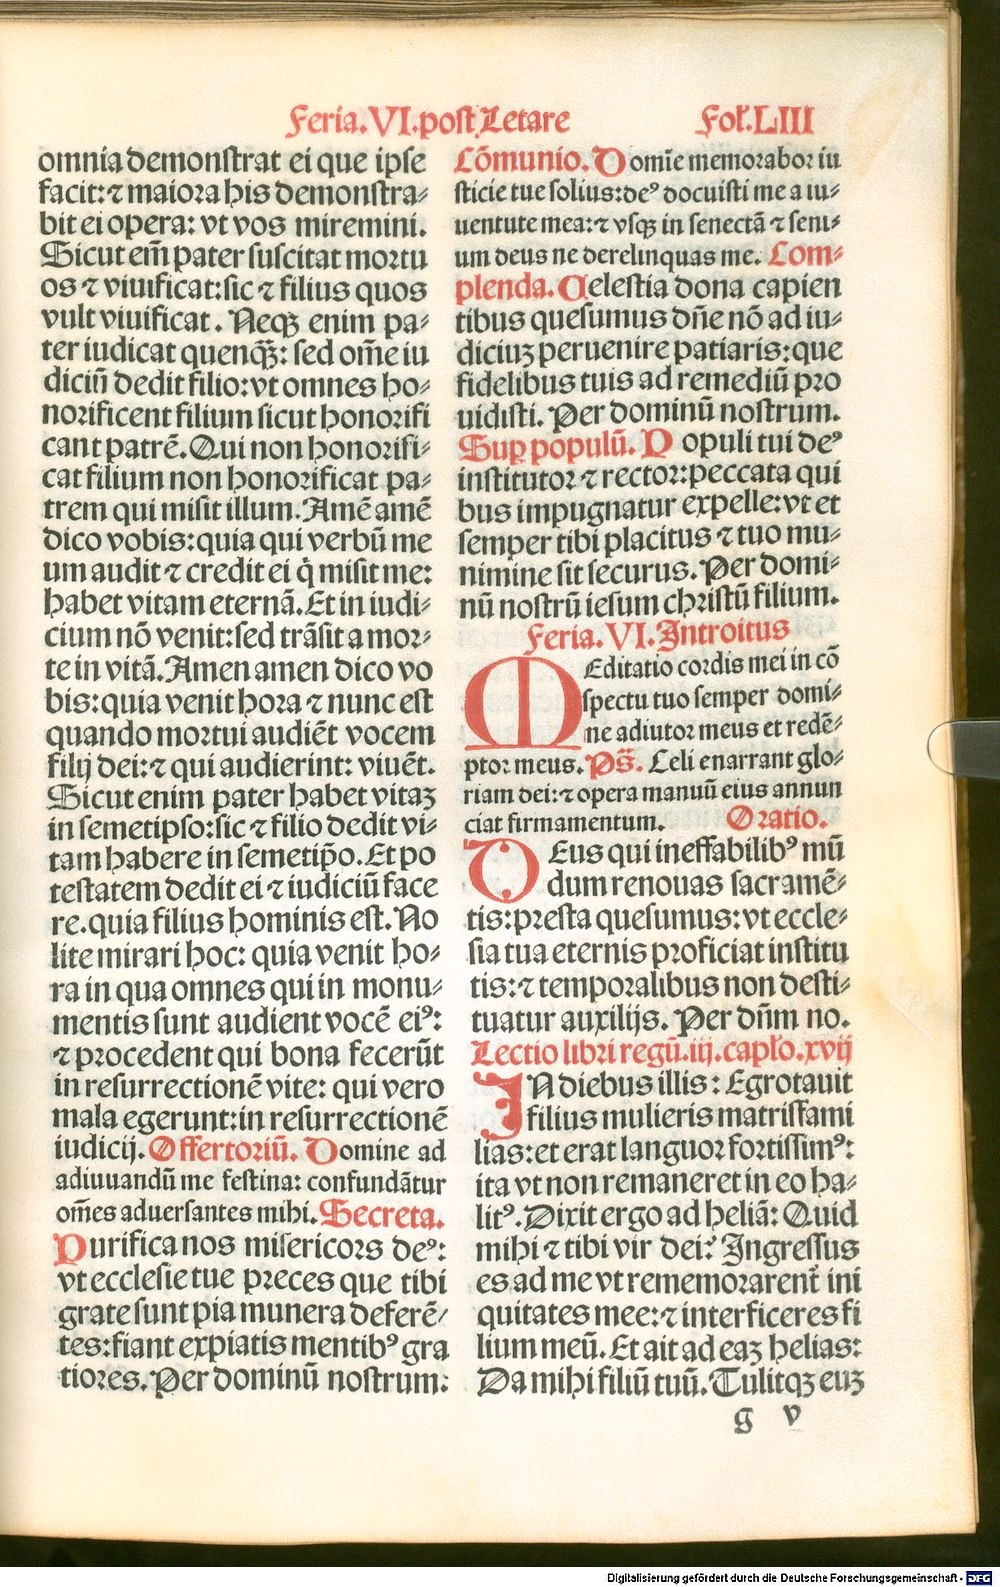 Feria.VI.post Letare Fol.LIII
omnia demonstrat ei que ipse
facit:⁊ maiora his demonstra⸗
bit ei opera: vt vos miremini.
Sicut em̄ pater suscitat mortu
os ⁊ viuificat:sic ⁊ filius quos
vult viuificat. Neqꝫ enim pa⸗
ter iudicat quenqꝫ̄: sed om̄e iu
diciū dedit filio:vt omnes ho⸗
norificent filium sicut honorifi
cant patrē. Qui non honorifi⸗
cat filium non honorificat pa⸗
trem qui misit illum. Amē amē
dico vobis:quia qui verbū me
um audit ⁊ credit ei q̇ misit me:
habet vitam eternā. Et in iudi⸗
cium nō venit:sed trāsit a mor⸗
te in vitā. Amen amen dico vo
bis:quia venit hora ⁊ nunc est
quando mortui audiēt vocem
filij dei:⁊ qui audierint: viuēt.
Sicut enim pater habet vitaꝫ
in semetipso:sic ⁊ filio dedit vi⸗
tam habere in semetip̄o. Et po
testatem dedit ei ⁊ iudiciū face
re.quia filius hominis est. No
lite mirari hoc: quia venit ho⸗
ra in qua omnes qui in monu⸗
mentis sunt audient vocē eiꝰ:
⁊ procedent qui bona fecerūt
in resurrectionē vite: qui vero
mala egerunt:in resurrectionē
iudicij. Offertoriū. Domine ad
adiuuandū me festina: confundātur
om̄es aduersantes mihi. Secreta.
Purifica nos misericors deꝰ:
vt ecclesie tue preces que tibi
grate sunt pia munera deferē⸗
tes:fiant expiatis mentibꝰ gra
tiores. Per dominū nostrum:
Cōmunio. Domīe memorabor iu
sticie tue solius:deꝰ docuisti me a iu⸗
uentute mea:⁊ vsqꝫ in senectā ⁊ seni⸗
um deus ne derelinquas me. Com⸗
plenda. Celestia dona capien
tibus quesumus dn̄e nō ad iu⸗
diciuꝫ peruenire patiaris:que
fidelibus tuis ad remediū pro
uidisti. Per dominū nostrum.
Suꝑ populū. Populi tui deꝰ
institutor ⁊ rector:peccata qui
bus impugnatur expelle:vt et
semper tibi placitus ⁊ tuo mu⸗
nimine sit securus. Per domi⸗
nū nostrū iesum christū filium.
Feria.VI.Introitus
MEditatio cordis mei in cō
spectu tuo semper domi⸗
ne adiutor meus et redē⸗
ptor meus. Ps̄. Celi enarrant glo⸗
riam dei:⁊ opera manuū eius annun
ciat firmamentum. Oratio.
DEus qui ineffabilibꝰ mū
dum renouas sacramē⸗
tis:presta quesumus:vt eccle⸗
sia tua eternis proficiat institu
tis:⁊ temporalibus non desti⸗
tuatur auxilijs. Per dn̄m no.
Lectio libri regū.iij.capło.xvij
IN diebus illis: Egrotauit
filius mulieris matrisfami
lias:et erat languor fortissimꝰ:
ita vt non remaneret in eo ha⸗
litꝰ. Dixit ergo ad heliā: Quid
mihi ⁊ tibi vir dei? Ingressus
es ad me vt rememorarent᷑ ini
quitates mee:⁊ interficeres fi
lium meū. Et ait ad eaꝫ helias:
Da mihi filiū tuū. Tulitqꝫ euꝫ
g v
Digitalisierung gefördert durch die Deutsche Forschungsgemeinschaft - DFG